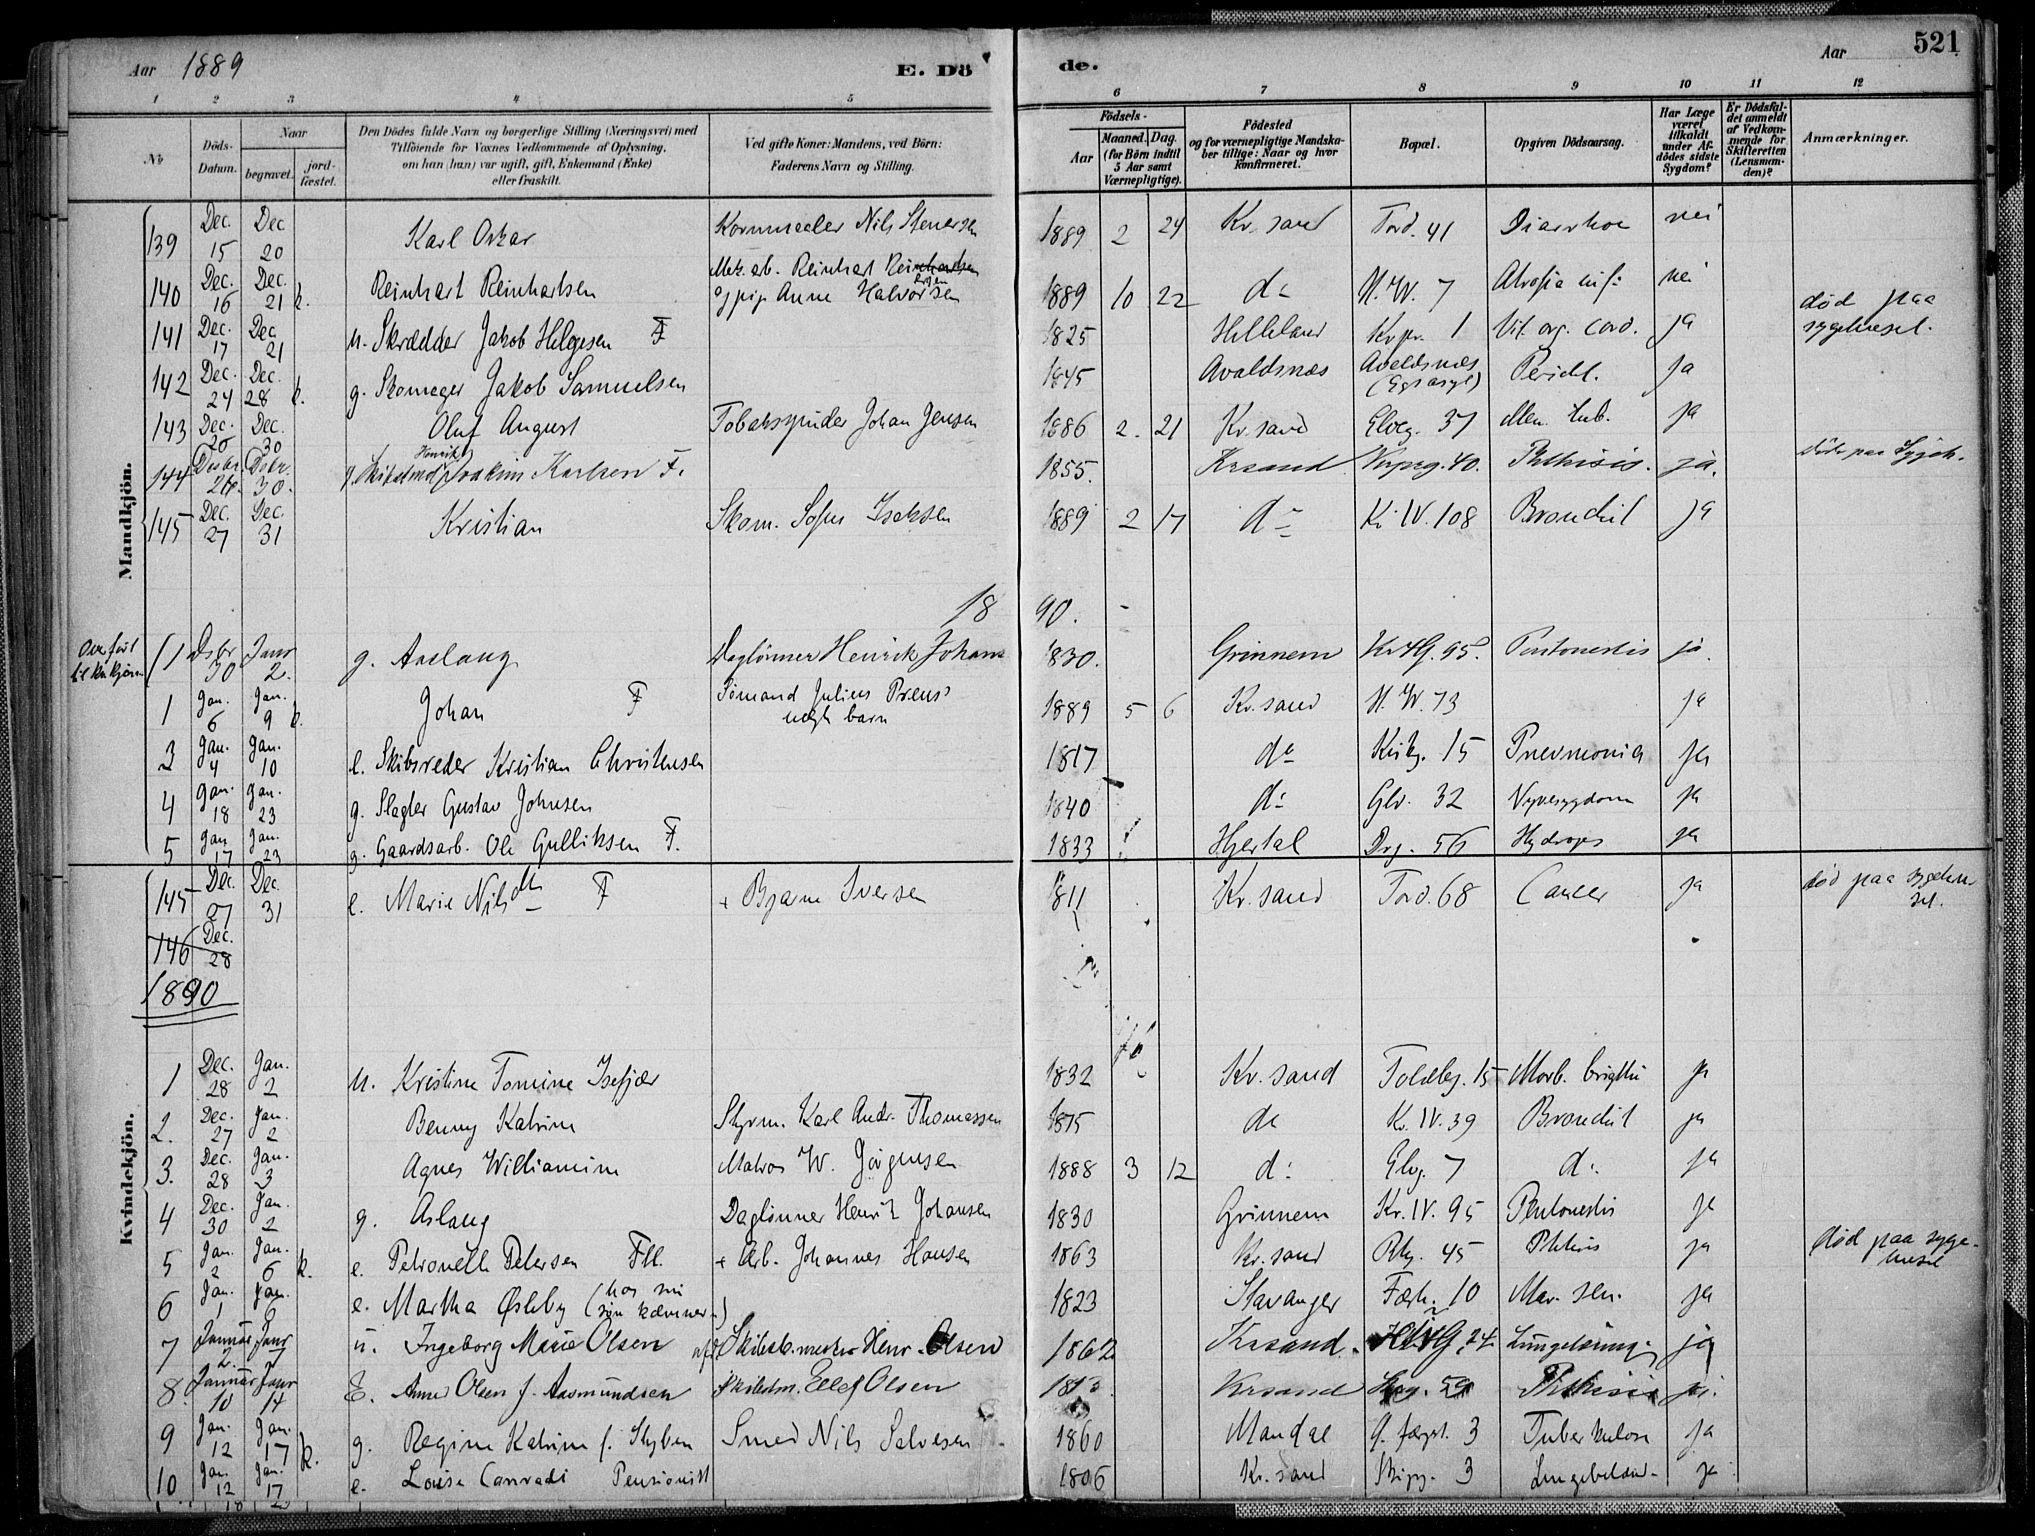 521
Aar 1889
E. Dö
de.
Aar
1 2 3 4 5 6 7 8 9 10 11 12
No
Döds-Datum.
Naar
begravet.
jord-fæstet.
Den Dödes fulde Navn og borgerlige Stilling (Næringsvei) med Tilföiende for Voxnes Vedkommende af Oplysning, om han (hun) var ugift, gift, Enkemand (Enke) eller fraskilt.
Ved gifte Koner: Mandens, ved Börn: Faderens Navn og Stilling.
Födsels-
Aar
Maaned. Dag.
(for Börn indtil 5 Aar samt Værnepligtige).
Födested og for værnepligtige Mandskaber tillige: Naar og hvor konfirmeret.
Bopæl.
Opgiven Dödsaarsag.
Har Læge været tilkaldt under Afdödes sidste Sygdom?
Er Dödsfaldet anmeldt af Vedkommende for Skifteretten (Lensmanden)?
Anmærkninger.
Mandkjön.
139 Dec. 15 Dec 20 Karl Oskar Kornmaaler Nils Stenersen 1889 2 24 Kr. sand Tord. 41 Diarrhoe nei
140 Dec. 16 Dec. 21 k. Reinhart Reinhartsen Mek. arb. Reinhart og pige Anne Halvorsen 1889 10 22 do H. W. 7 Atrofia inf: nei
141 Dec. 17 Dec 21 u. Skrædder Jakob Helgesen F 1825 Helleland Kr. 1 Vit. org. cord. ja død paa sygehuset.
142 Dec. 24 Dec. 28 k. g. Skomager Jakob Samuelsen 1845 Avaldsnæs Avaldsnæs ja
143 Dec. 26 Dec. 30 Oluf August Tobakspinder Johan Jensen 1886 2. 21 Kr. sand Elveg. 37 Men. tub. ja
144 30. Henrik Joakim Karlsen F. 1855. Krsand 40. Phthisis. ja. døde paa Sygeh.
145 Dec. 27 Dec. 31 Kristian Skom. Sofus Isaksen 1889 2 17 do Kr IV. 108 Bronchit ja
18 90.
Overført til Kvkjøn
1 Dsbr 30 Janr 2. g. Aaslaug Daglønner Henrik Johans 1830. Grinnem 95. ja.
1 Jan. 6 Jan. 9 k. Johan F Sømand Julius Preus' uægte barn 1889 5 6 Kr. sand H. W. 73 ja
3 Jan. 4 Jan. 10 e. Skibsreder Kristian Christensen 1817 do Kirkg. 15 Pnevmonia ja
4 Jan. 18 Jan. 23 g. Slagter Gustav Johnsen 1840 do Glv. 32 Nyresygdom ja
5 Jan 17 Jan. 23 g. Gaardsarb. Ole Gulliksen F. 1833 Hjertal Drg. 56 Hydrops ja
Kvindekjön.
145 Dec. 27 Dec. 31 e. Marie Nilsdtr F + Bjarne Iversen 1811 Kr. sand Tord. 68 Cancer ja død paa sygehuset.
146 Dec. 28
1890
1 Dec. 28 Jan. 2 u. Kristine Tomine Isefjær 1832 Kr. sand Toldbg. 15 Morb. brigthi ja
2. Dec. 27 Jan. 2 Benny Katrine Styrm. Karl Andr. Thomassen 1875 do Kr. IV. 39 Bronchit ja
3. Dec. 28 Jan. 3 Agnes Williamine Matros W. Jørgensen 1888 3 12 do Elvg. 7 do ja
4 Dec. 30 Jan. 2 g. Aslaug Daglønner Henrik Johansen 1830 Grinnem Kr. IV. 95 ja
5 Jan. 2 Jan. 6 k. e. Petronelle Petersen Fll. + Arb. Johannes Hansen 1863 Kr. sand 45 Phthisis ja død paa sygehuset
6 Jan. 1 Jan. 8 e. Martha Øsleby (hos sin søn kæmner) 1823 Stavanger Færk. 10 Mar. sen. ja
7 Januar 2. Janr 7 u. Ingeborg Marie Olsen Henr. Olsen 1862 Krsand. 24 ja
8. Januar 10 Janr 14 E. Anne Olsen f. Aasmundsen Skibstm. Ellef Olsen 1813. Krsand Phthisis ja.
9 Jan. 12 Jan. 17 k. g. Regine Katrine f. Styben Smed Nils Salvesen 1860 Mandal 3 Tuberkulose ja
10 Jan. 12 Jan. 17 e. Louise Conradi Pensionist 1806 Kr. sand Skipg. 3 ja